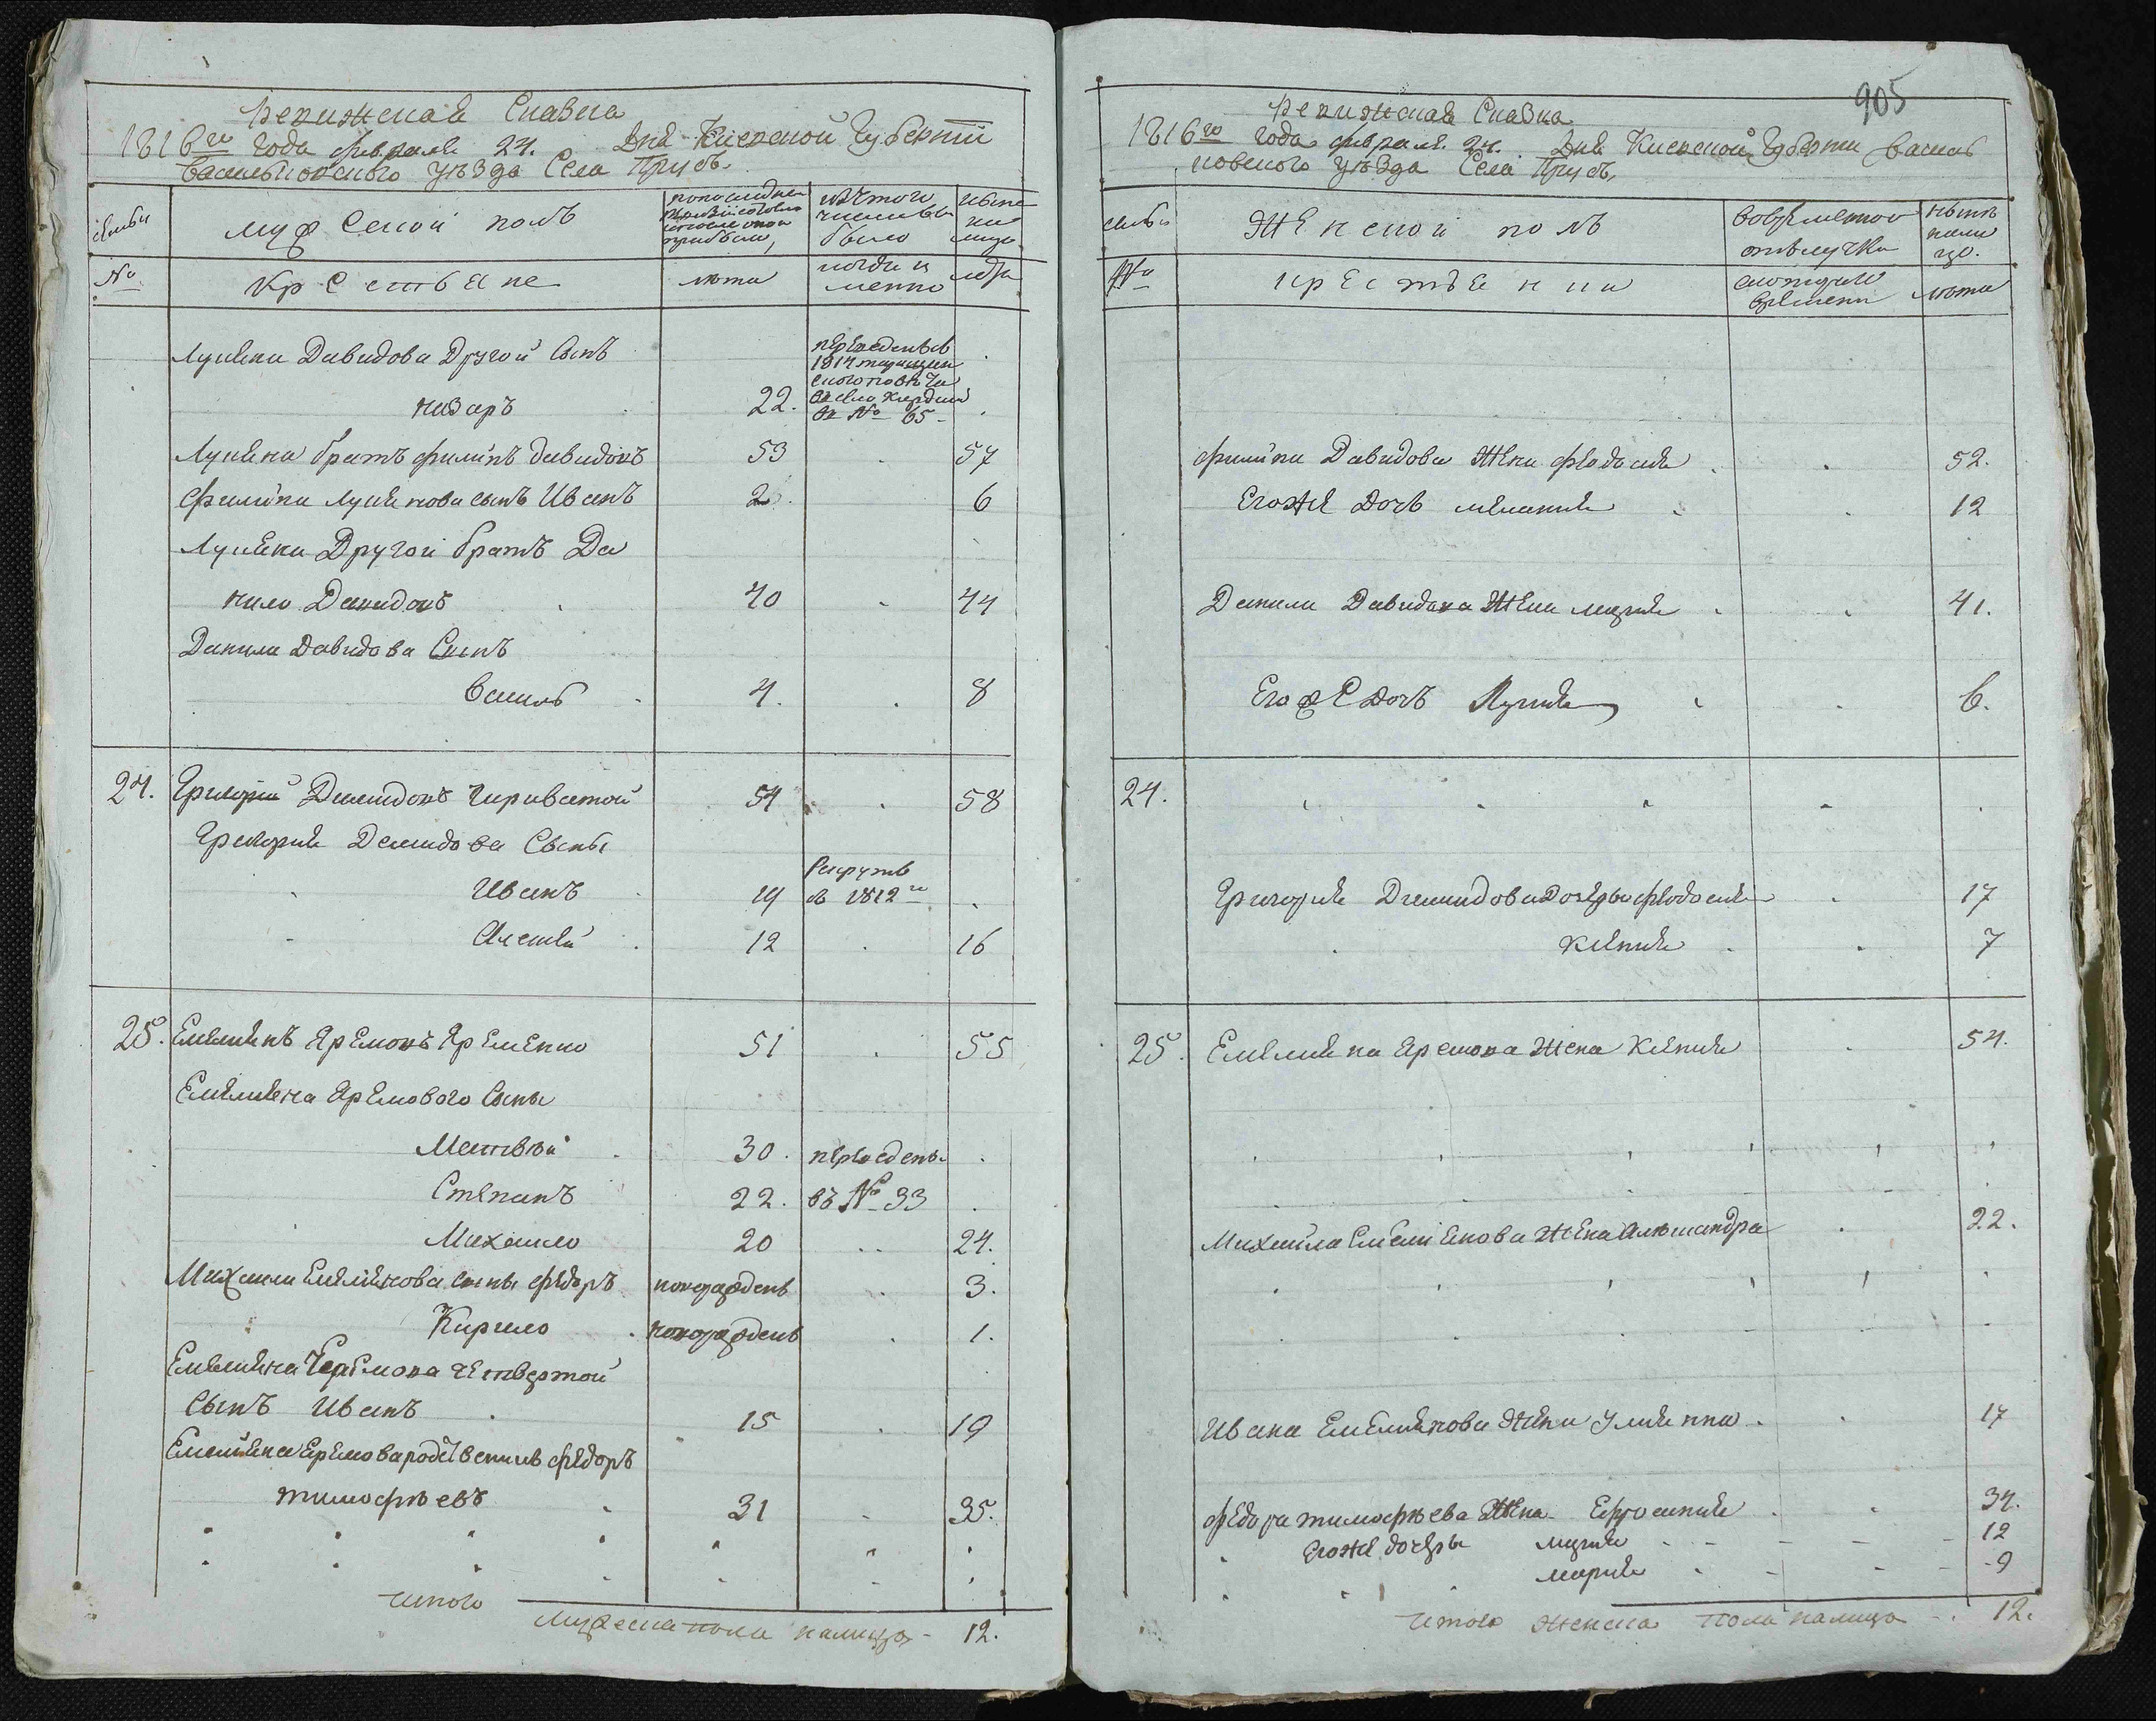 Ревижская Сказка
1816го года февраля 24. Дня Киевской Губернїи
Васильковского уѣзда Села Прусъ.
семьи
мужеской полъ
было
№
Крестьяне
лѣта
лѣта
Лукяна Давидова Другой Сынъ
переведенъ в
1814
Назаръ
22.
№ 65
Лукяна братъ филипъ давидовъ
53
57
филипа Лукянова сынъ Иванъ
2.
6
Лукяна Другой братъ Да
нило Давидовъ
40
44
Данила Давидова Сынъ
Василь
4.
8
24. Григорий Демидовъ Чириватой
54
58
Григория Демидова Сыны
Иванъ
19
Рекрутъ
в 1812го
Алексѣй
12
16
25. Емелиянъ Яремовъ Яременко
51
55
Емелияна Яремового Сыны
Матвѣй
30.
переведены
Степанъ
22.
въ № 33
Михайло
20
24.
Михаила Емелиянова сыны федоръ
новорожденъ
3.
Кирило
новорожденъ
1.
Емелияна Яремова четвертой
Сынъ Иванъ
15
19
Емелияна Еремова родственикъ федоръ
тимофѣевъ
31
35.
Итого
Мужеска пола налицо - 12.
905
Ревижская Сказка
1816го года февраля 24. Дня Киевской Губернїи Василь
ковского уѣзда Села Прусъ,
семьи
Женской полъ
во временной
отлучке
нынѣ
нали
цо.
№
крестьянки
с которого
времени
лѣта
филипа Давидова Жена феодосия
52.
Егоже Дочь мелания
12
Данила Давидова Жена мария
41.
Егоже Дочь Лукия
6.
24.
Григория Демидова Дочери феодосия
17
Ксения
7
25. Емелияна Яремова Жена Ксения
54.
Михайла Емелиянова Жена Александра
22.
Ивана Емелиянова Жена Улияна
17
федора тимофѣева Жена Ефросиния
34.
Егоже дочеры мария
12
мария
9
Итого Женска пола налицо 12.